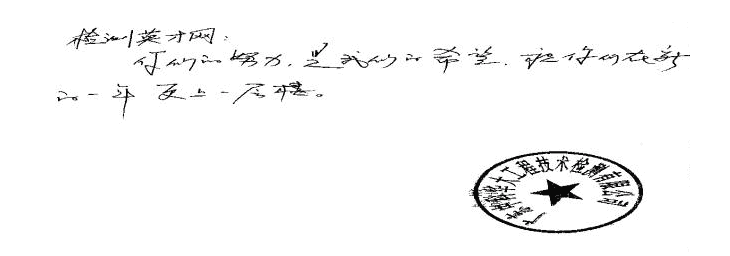 检测英才网:
你们的努力,是我们的希望,祝你们在新
的一年更上一层楼。
华大工程技术检测有限公司